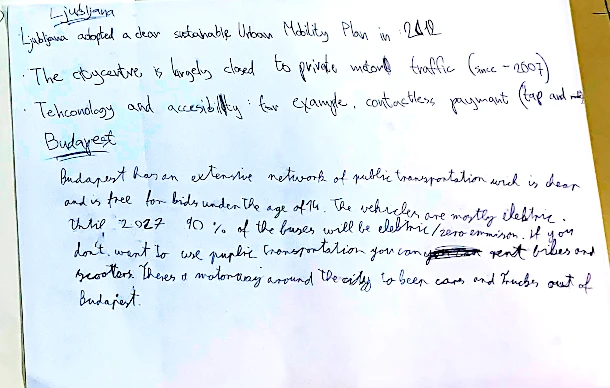 Ljubljana
Ljubljana adopted a clear sustainable Urban Mobility Plan in 2012
· The citycentre is largely closed to private motord traffic (since - 2007)
· Tehconology and accesibility: for example, contactless paymant (tap and
Budapest
Budapest has an extensive network of public transportation wich is cheap
and is free for kids under the age of 14. The vehicles are mostly elektric.
Until 2027 90 % of the buses will be elektric/zero emmison. If you
don't want to use puplic transportation you can rent bikes and
scooters. Theres a motorway around the city to keep cars and trucks out of
Budapest.